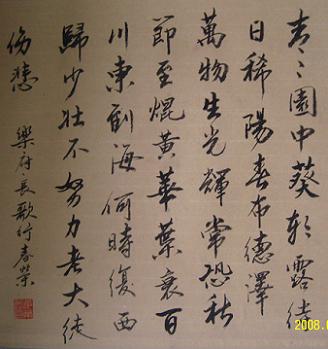 青〻園中葵朝露待
日稀陽春布德澤
萬物生光輝常恐秋
節至焜黃華葉衰百
川東到海何時復西
歸少壯不努力老大徒
傷悲 樂府長歌行春榮
2008.0